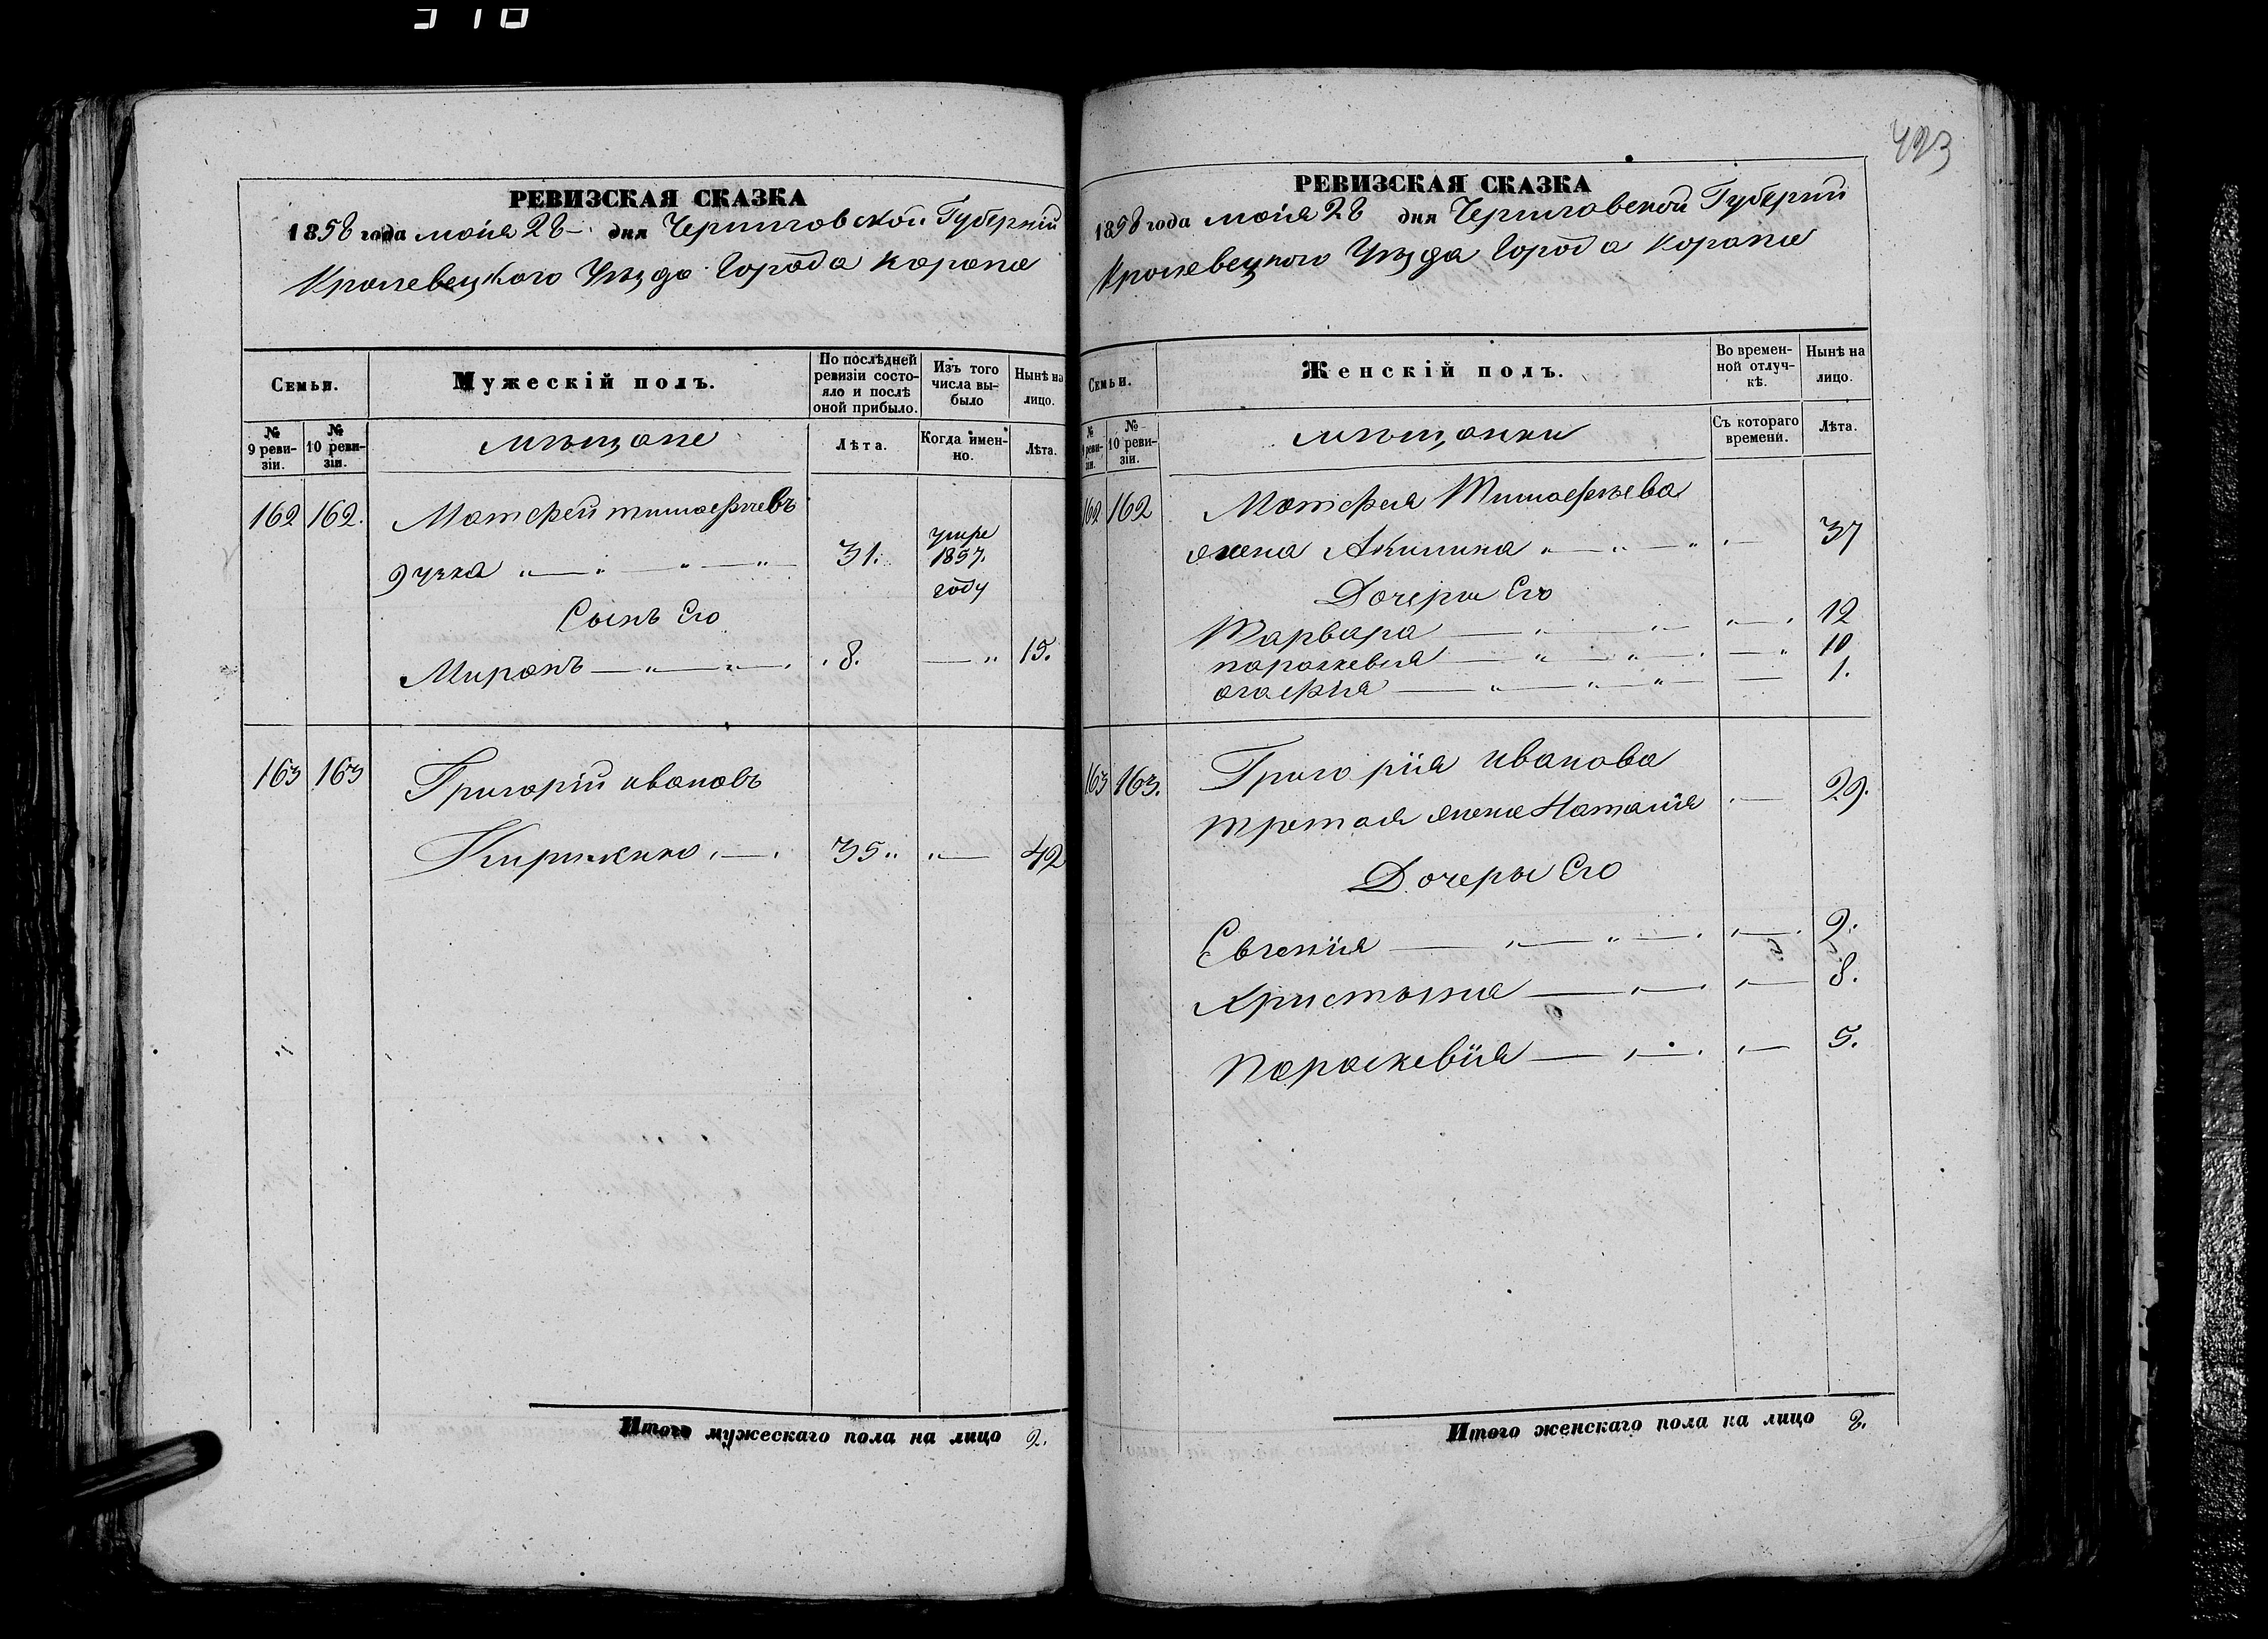 423
РЕВИЗСКАЯ СКАЗКА
1858 года мая 28 дня Черниговской Губерніи
Кролевецкого Уезда Города Коропа
Семьи.
Мужескій полъ.
По послѣдней ревизіи состояло и послѣ оной прибыло.
Изъ того числа выбыло
Нынѣ на лицо.
№ 9 ревизіи.
№ 10 ревизіи.
мѣщане
Лѣта.
Когда именно.
Лѣта.
162 162. Матфей тимофѣевъ
31. умре 1857. году
Сынъ Его
Миронъ 8. 15.
163 163 Григорій ивановъ
35 42
Итого мужескаго пола на лицо 2.
РЕВИЗСКАЯ СКАЗКА
1858 года мая 28 дня Черниговской Губерніи
Кролевецкого Уезда Города Коропа
Семьи.
Женскій полъ.
Во временной отлучкѣ.
Нынѣ на лицо.
№ 9 ревизіи.
№ 10 ревизіи.
мѣщанки
Съ котораго времени.
Лѣта.
162 162 Матфея Тимофѣева
жена Акилина 37
Дочери Его
Варвара 12
параскевия 10
агафія 1.
163 163. Григорія иванова
третая жена Наталія 29.
Дочеры Его
Евгенія 9.
Христина 8.
Параскевія 5.
Итого женскаго пола на лицо 8.